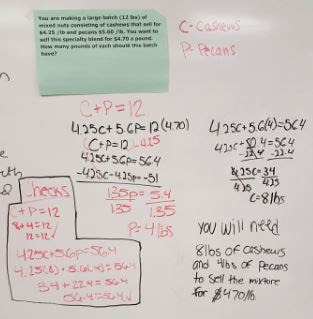 You are making a large batch (12 lbs) of
mixed nuts consisting of cashews that sell for
$4.25 /lb and pecans $5.60 /lb. You want to
sell this specialty blend for $4.70 a pound.
How many pounds of each should this batch
have?
C- Cashews
P- Pecans
C+P=12
4.25C+5.6P=12(4.70)
(C+P=12) -4.25
4.25C+5.6P=56.4
-4.25C-4.25P=-51
1.35P=5.4
1.35 1.35
P=4 lbs
Checks
C+P=12
8+4=12
12=12✓
4.25C+5.6P=56.4
4.25(8)+5.6(4)=56.4
34+22.4=56.4
56.4=56.4✓
4.25C+5.6(4)=56.4
4.25C+22.4=56.4
-22.4 -22.4
4.25C=34
4.25 4.25
C=8 lbs
you will need
8lbs of cashews
and 4lbs of pecans
to sell the mixture
for $4.70/lb.